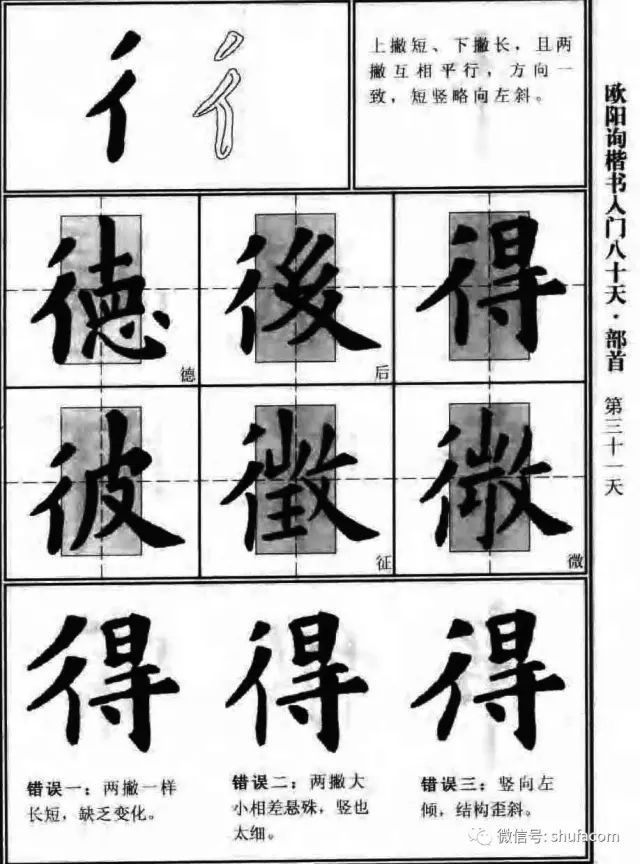 彳
上撇短、下撇长，且两
撇互相平行，方向一
致，短竖略向左斜。
欧阳询楷书入门八十天·部首 第三十一天
德 後 得
德 后
彼 徵 微
征 微
得 得 得
错误一：两撇一样
长短，缺乏变化。
错误二：两撇大
小相差悬殊，竖也
太细。
错误三：竖向左
倾，结构歪斜。
微信号: shufacom